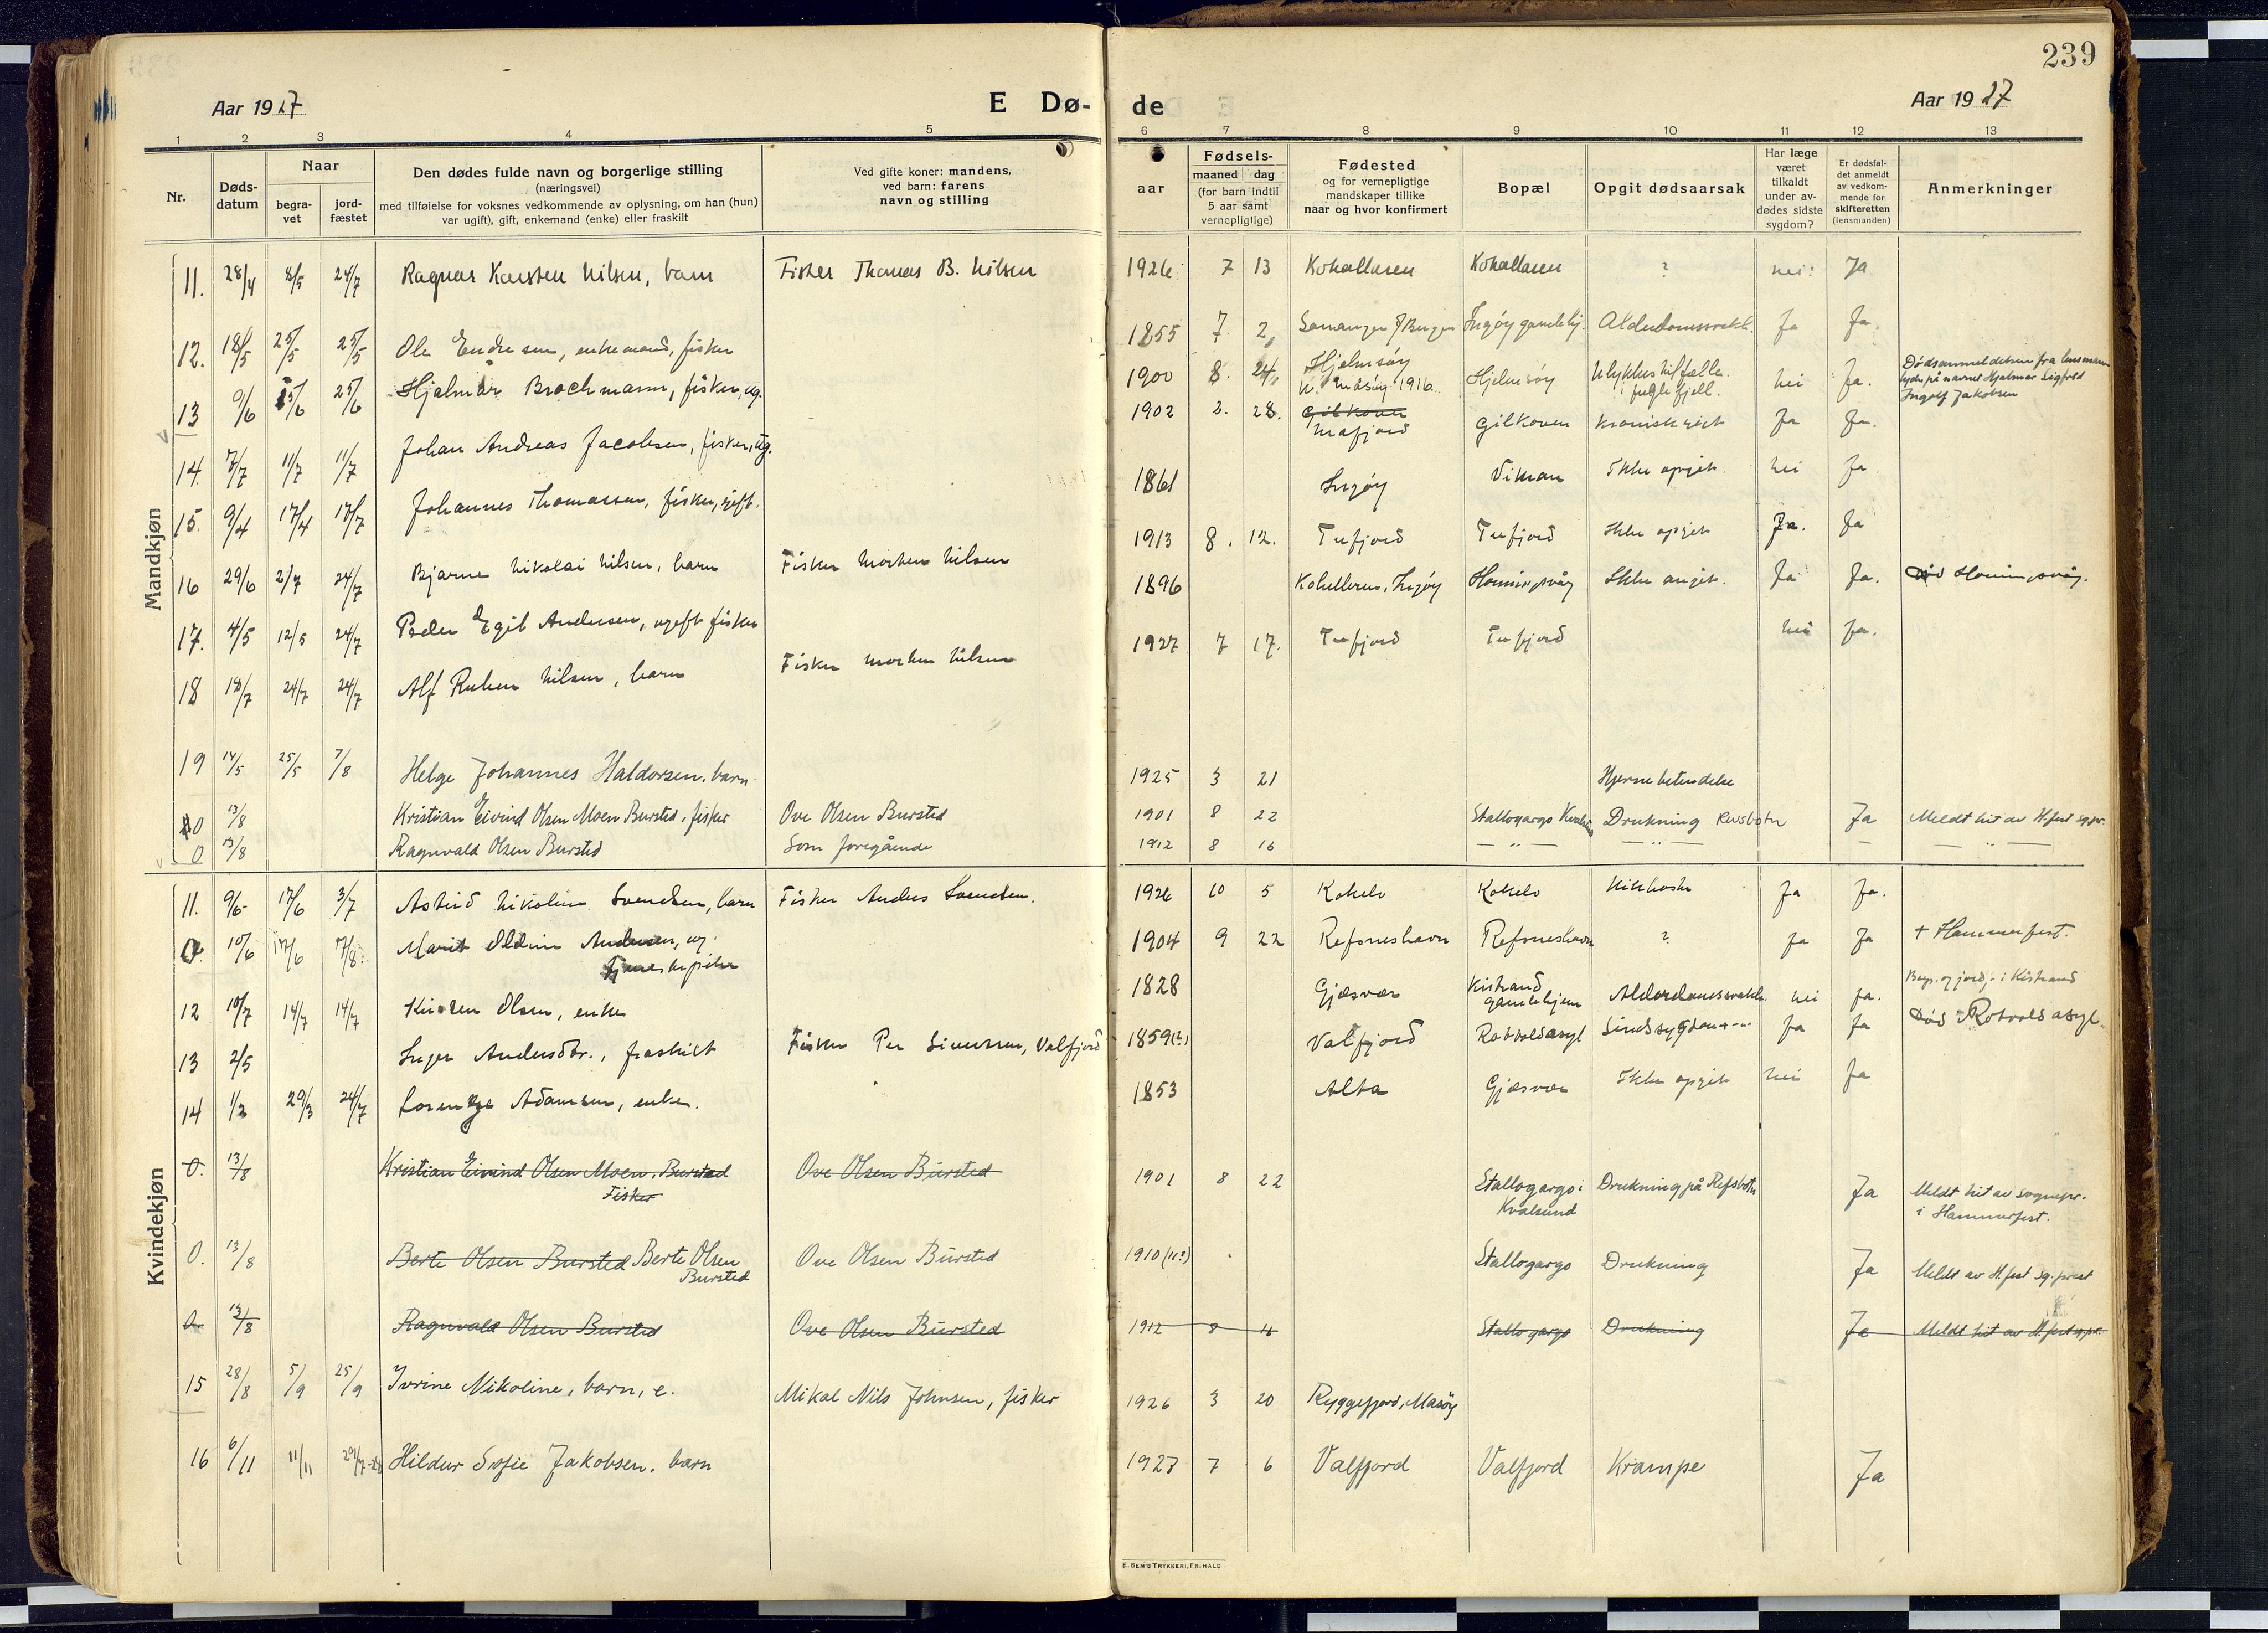 239
Aar 1927
E Dø-
de
Aar 1927
1 2 3 4 5 6 7 8 9 10 11 12 13
Nr.
Døds-
datum
Naar
begra-
vet
jord-
fæstet
Den dødes fulde navn og borgerlige stilling
(næringsvei)
med tilføielse for voksnes vedkommende av oplysning, om han (hun)
var ugift), gift, enkemand (enke) eller fraskilt
Ved gifte koner: mandens,
ved barn: farens
navn og stilling
aar
Fødsels-
maaned dag
(for barn indtil
5 aar samt
vernepligtige)
Fødested
og for vernepligtige
mandskaper tillike
naar og hvor konfirmert
Bopæl
Opgit dødsaarsak
Har læge
været
tilkaldt
under av-
dødes sidste
sygdom?
Er dødsfal-
det anmeldt
av vedkom-
mende for
skifteretten
(lensmanden)
Anmerkninger
Mandkjøn
11. 28/4 8/5 24/7 Ragnar Karsten Nilsen, barn Fisker Thomas B. Nilsen 1926 7 13 Kohallasen Kohallasen ? nei Ja
12. 18/5 25/5 25/5 Ole Endresen, enkemand, fisker 1855 7. 2 Ingøy gamlehj. Ja Ja.
13 9/6 25/6 Hjalmar Brochmann, fisker, ug. 1900 8. 24. Hjelmsøy
K. Måsøy 1916. Hjelmsøy Ulykkestilfælle
i fuglefjell. nei Ja. Dødsanmeldelsen fra lensmann
lyder på navnet Hjalmar Sigfred
Ingolf Jakobsen
14. 7/7 11/7 11/7 Johan Andreas Jacobsen, fisker, ug. 1902 2. 28. Gilkoven
Mafjord Gilkoven Ja Ja.
15. 9/4 17/4 17/7 Johannes Thomassen, fisker, gift. 1861 Ingøy Vikran Ikke opgit. nei Ja
16 29/6 2/7 24/7 Bjarne Nikolai Nilsen, barn Fisker Morten Nilsen 1913 8. 12. Tufjord Tufjord Ikke opgit Ja. Ja
17. 4/5 12/5 24/7 Peder Egil Andersen, ugift fisker 1896 Kohelleren, Ingøy Honningsvåg Ikke angit. Ja Ja. Død Honningsvåg.
18 18/7 24/7 24/7 Alf Ruben Nilsen, barn Fisker Morten Nilsen 1927 7 17. Tufjord Tufjord nei Ja.
19 14/5 25/5 7/8 Helge Johannes Haldorsen. barn 1925 3 21 Hjernebetendelse
0 13/8 Kristian Eivind Olsen Moen Bursted, fisker Ove Olsen Bursted 1901 8 22 Stallogargo Drukning Revsbotn Ja Meldt hit av H.fest sg.pr.
0 13/8 Ragnvald Olsen Bursted Som foregående 1912 8 16 — „ — — „ — — — „ —
Kvindekjøn
11. 9/6 17/6 3/7 Astrid Nikoline Svendsen, barn Fisker Anders Svendsen. 1926 10 5 Kokelv Kokelv Kikhoste Ja Ja.
0. 10/6 17/6 7/8. Marit Andersen, ug.
tjenestepike 1904 9 22 Refsneshavn Refsneshavn ? Ja Ja + Hammerfest.
12 10/7 14/7 14/7 Kirsten Olsen, enke 1828 Gjæsvær Kistrand
gamlehjem Alderdomssvakh. nei Ja. Begr. og jordf. i Kistrand
13 2/5 Inger Andersdtr., fraskilt Fisker Per Sivertsen, Valfjord 1859(?) Valfjord Rotvoldasyl Ja Ja Død Rotvoldasyl.
14 1/3 29/3 24/7 Adamsen, enke. 1853 Alta Gjæsvær Ikke opgit nei Ja
0. 13/8 Kristian Eivind Olsen Moen. Bursted
Fisker Ove Olsen Bursted 1901 8 22 Stallogargo i
Kvalsund Drukning på Refsbotn Ja Meldt hit av sognepr.
i Hammerfest.
0. 13/8 Berte Olsen Bursted Berte Olsen
Bursted Ove Olsen Bursted 1910 (11?) Stallogargo Drukning Ja Meldt av H.fest sg.prest
0 13/8 Ragnvald Olsen Bursted Ove Olsen Bursted 1912 8 16 Stallogargo Drukning Ja Meldt hit av H.fest sg.pr.
15 28/8 5/9 25/9 Ivrine Nikoline, barn, e. Mikal Nils Johnsen, fisker 1926 3 20 Ryggefjord, Måsøy
16 6/11 11/11 29/7-28 Hildur Sofie Jakobsen. barn 1927 7 6 Valfjord Valfjord Krampe Ja
E. SEM'S TRYKKERI, FR.HALD